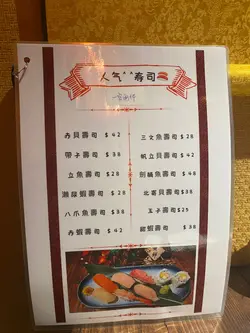 人气^^寿司
一客兩件
丹貝壽司 $42
三文魚壽司 $28
帶子壽司 $38
帆立貝壽司 $42
立魚壽司 $28
劍魚壽司 $28
蝦壽司 $28
北寄貝壽司 $38
八爪魚壽司 $38
玉子壽司 $25
丹蝦壽司 $42
蝦壽司 $38